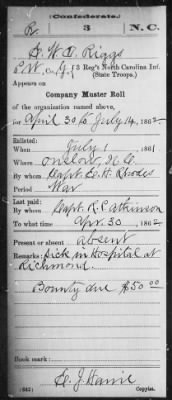 (Confederate.)
R 3 N.C.
G W D Riggs
Pvt, Co. G, 3 Reg't North Carolina Inf.
(State Troops.)
Appears on
Company Muster Roll
of the organization named above,
for April 30 to July 14, 1862
Enlisted:
When July 1 1861
Where Onslow, N.C.
By whom Capt. E. H. Rhodes
Period War
Last paid:
By whom Capt. R. P. Atkinson
To what time Apr. 30, 1862
Present or absent absent
Remarks: Sick in Hospital at
Richmond.
Bounty due $50.00
Book mark:
(642) Copyist.